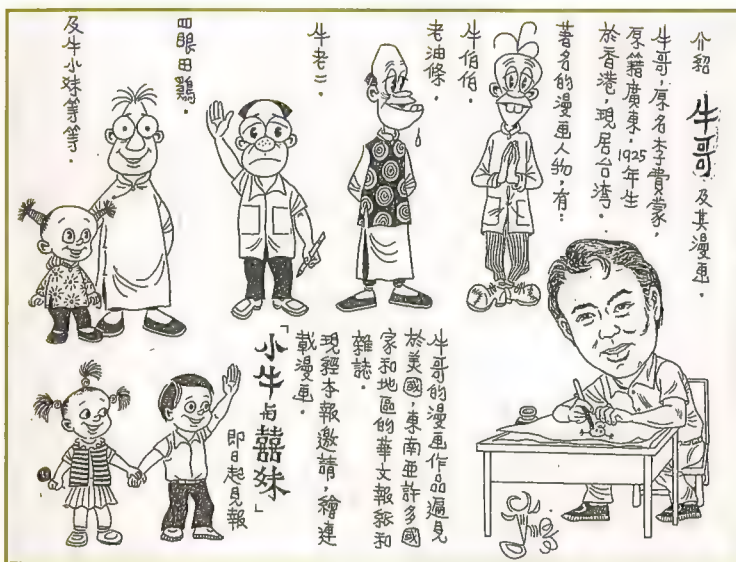 介紹 牛哥 及其漫画．
牛哥，原名李費蒙，
原籍廣東，1925年生
於香港，現居台湾．
著名的漫画人物，有：
牛伯伯．
老油條．
牛老二．
四眼田鷄．
及牛小妹等等．
牛哥的漫画作品遍見
於美國，東南亚許多國
家和地區的華文報紙和
雜誌．
現經本報邀請，繪連
載漫画．
「小牛与囍妹」
即日起見報